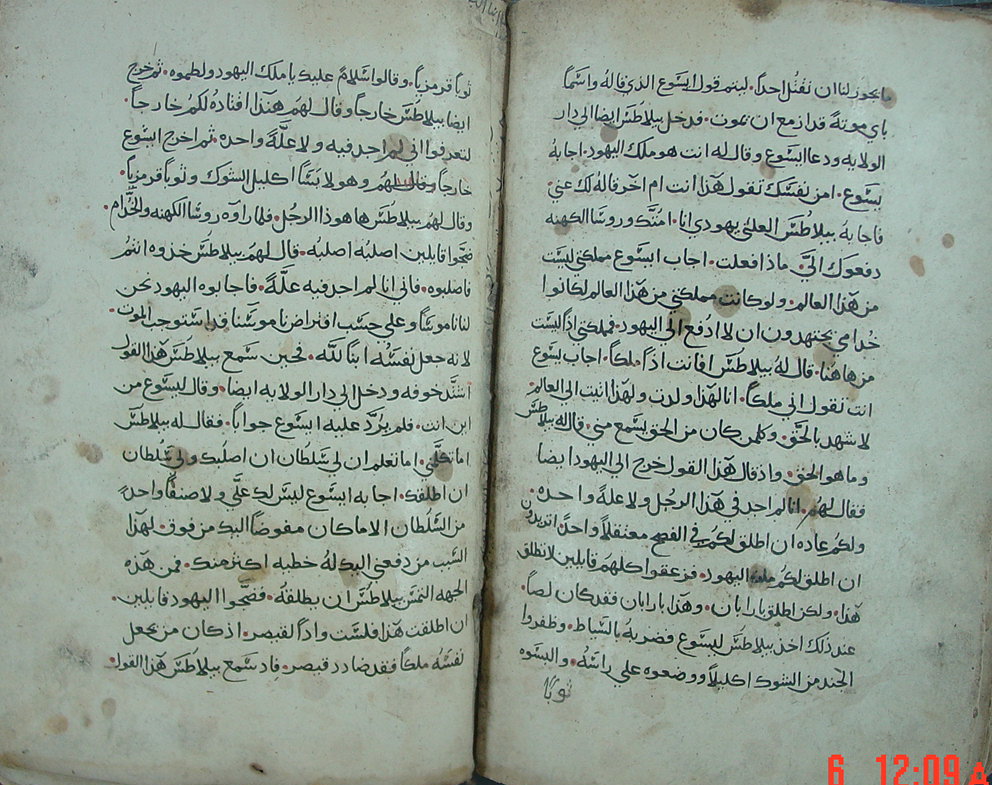 ما يجوز لنا ان نقتل احداً. ليتم قول ايسَوع الذي قاله واسَماً
باي موتةً قد ازمع ان يموت. فدخل بيلاطسَ ايضا الي دار
الولايه ودعا ايسَوع وقال له انت هو ملك اليهود. اجابه
يسَوع. امن نفسَك تقول هَذا انت ام اخر قاله لك عني.
فاجابه بيلاطسَ العلني يهودي انا. امتك وروسَا الكهنه
دفعوك اليَّ. ماذا فعلت. اجاب ايسَوع مملكتي ليسَت
من هَذا العالم. ولو كانت مملكتي من هَذا العالم لكانوا
خدامي يجتهدون ان لا ادفع الي اليهود. فمملكتي اذاً ليسَت
من هاهنا. قال له بيلاطسَ افانت اذاً ملكاً. اجاب يسَوع
انت تقول اني ملكاً. انا لهَذا ولدت ولهَذا اتيت الي العالم
لاشهد بالحَق. وكلمن كان من الحق يسَمع مني. قال له بيلاطسَ
وما هو الحق. واذ قال هَذا القول خرج الي اليهود ايضا
فقال لهم. انا لم اجد في هَذا الرجل ولا علةً واحده.
ولكم عاده ان اطلق لكم في الفصح معتقلاً واحداً اتريدون
ان اطلق لكم ملك اليهود. فزعقوا كلهم قايلين لا تطلق
هَذا. ولكن اطلق بارابان. وهَذا بارابان فقد كان لصاً.
عند ذلك اخذ بيلاطسَ ليسَوع فضربه بالسَياط. وظفروا
الجند من الشوك اكليلاً ووضعوه علي راسَه. والبسَوه
ثوبًا
ثوباً قرمزياً. وقالوا سَلامٌ عليك يا ملك اليهود ولطموه. ثم خرج
ايضا بيلاطسَ خارجاً وقال لهم هَنَذا اقتاده لكم خارجاً.
لتعرفوا اني لم اجد فيه ولا علَّةً واحده. ثم اخرج ايسَوع
خارجاً وهو لابسَاً اكليل الشوك وثوباً قرمزياً.
وقال لهم بيلاطسَ ها هو ذا الرجل. فلما راوه روسَا الكهنه والخُدَّام
ضجَّوا قايلين اصلبه اصلبه. قال لهم بيلاطسَ خذوه انتم
فاصلبوه. فاني انا لم اجد فيه علَّةً. فاجابوه اليهود نحن
لنا ناموسَاً وعلي حسَب افتراض ناموسَنا قد استوجب الموت.
لانه جعل نفسَه ابناً للَّه. فحين سَمع بيلاطسَ هَذا القول
اشتدَّ خوفه ودخل الي دار الولايه ايضا. وقال ليسَوع من
اين انت. فلم يردَّ عليه ايسَوع جواباً. فقال له بيلاطسَ
اما تكلَّمني. اما تعلم ان لي سَلطان ان اصلبك ولي سَلطان
ان اطلقك. اجابه ايسَوع ليسَ لك علَّي ولا صنفاً واحداً
من السَلطان الا ما كان مفوضاً اليك من فوق. لهَذا
السَبب من دفعني اليك له خطيه اكثر منك. فمن هَذه
الجهه التمسَ بيلاطسَ ان يطلقه. فضجَّوا اليهود قايلين.
ان اطلقت هَذا فلسَت واداً لقيصر. اذ كان من يجعل
نفسَه ملكاً فقد ضادد قيصر. فاذ سَمع بيلاطسَ هَذا القول.